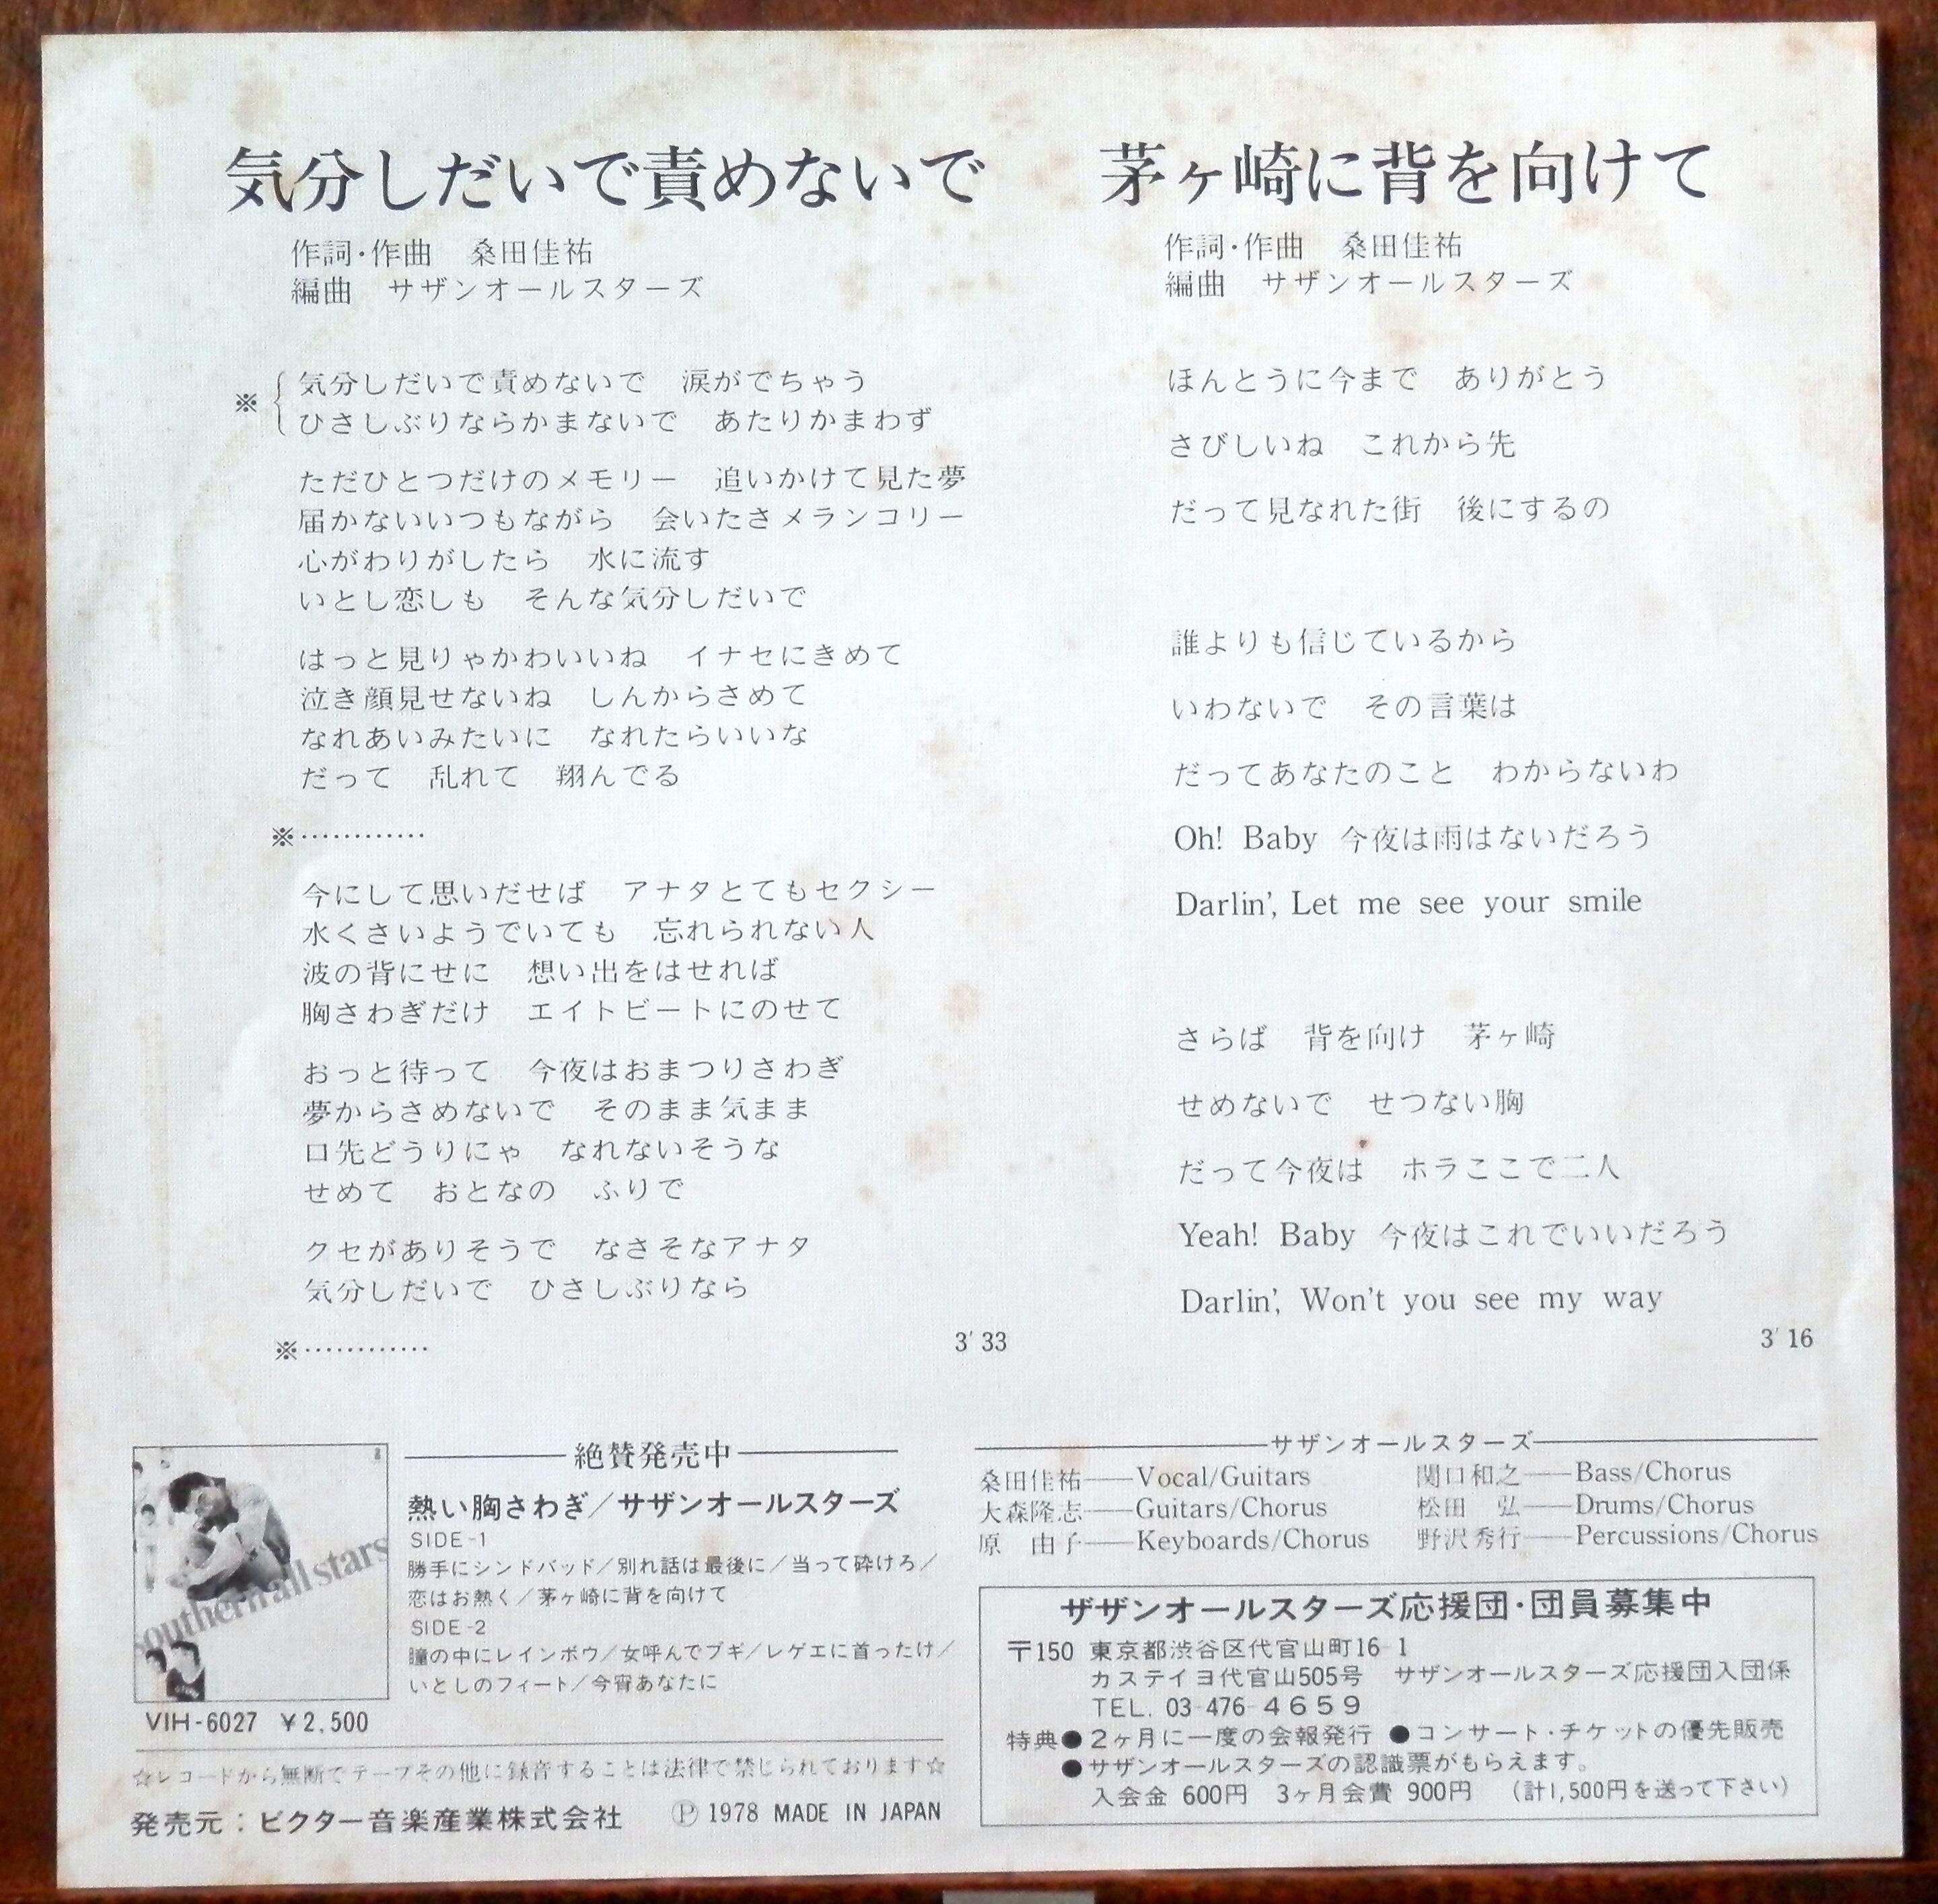 気分しだいで責めないで
作詞・作曲　桑田佳祐
編曲　サザンオールスターズ
※
気分しだいで責めないで　涙がでちゃう
ひさしぶりならかまないで　あたりかまわず
ただひとつだけのメモリー　追いかけて見た夢
届かないいつもながら　会いたさメランコリー
心がわりがしたら　水に流す
いとし恋しも　そんな気分しだいで
はっと見りゃかわいいね　イナセにきめて
泣き顔見せないね　しんからさめて
なれあいみたいに　なれたらいいな
だって　乱れて　翔んでる
※…………
今にして思いだせば　アナタとてもセクシー
水くさいようでいても　忘れられない人
波の背にせに　想い出をはせれば
胸さわぎだけ　エイトビートにのせて
おっと待って　今夜はおまつりさわぎ
夢からさめないで　そのまま気まま
口先どうりにゃ　なれないそうな
せめて　おとなの　ふりで
クセがありそうで　なさそなアナタ
気分しだいで　ひさしぶりなら
※…………
3′33
茅ヶ崎に背を向けて
作詞・作曲　桑田佳祐
編曲　サザンオールスターズ
ほんとうに今まで　ありがとう
さびしいね　これから先
だって見なれた街　後にするの
誰よりも信じているから
いわないで　その言葉は
だってあなたのこと　わからないわ
Oh! Baby 今夜は雨はないだろう
Darlin', Let me see your smile
さらば　背を向け　茅ヶ崎
せめないで　せつない胸
だって今夜は　ホラここで二人
Yeah! Baby 今夜はこれでいいだろう
Darlin', Won't you see my way
3′16
southern all stars
VIH-6027　¥2,500
絶賛発売中
熱い胸さわぎ／サザンオールスターズ
SIDE-1
勝手にシンドバッド／別れ話は最後に／当って砕けろ／
恋はお熱く／茅ヶ崎に背を向けて
SIDE-2
瞳の中にレインボウ／女呼んでブギ／レゲエに首ったけ／
いとしのフィート／今宵あなたに
☆レコードから無断でテープその他に録音することは法律で禁じられております☆
発売元：ビクター音楽産業株式会社　Ⓟ 1978 MADE IN JAPAN
サザンオールスターズ
桑田佳祐――Vocal/Guitars　関口和之――Bass/Chorus
大森隆志――Guitars/Chorus　松田　弘――Drums/Chorus
原　由子――Keyboards/Chorus　野沢秀行――Percussions/Chorus
ザザンオールスターズ応援団・団員募集中
〒150 東京都渋谷区代官山町16-1
カステイヨ代官山505号　サザンオールスターズ応援団入団係
TEL. 03-476-4659
特典●2ヶ月に一度の会報発行 ●コンサート・チケットの優先販売
●サザンオールスターズの認識票がもらえます。
入会金 600円　3ヶ月会費 900円　（計1,500円を送って下さい）